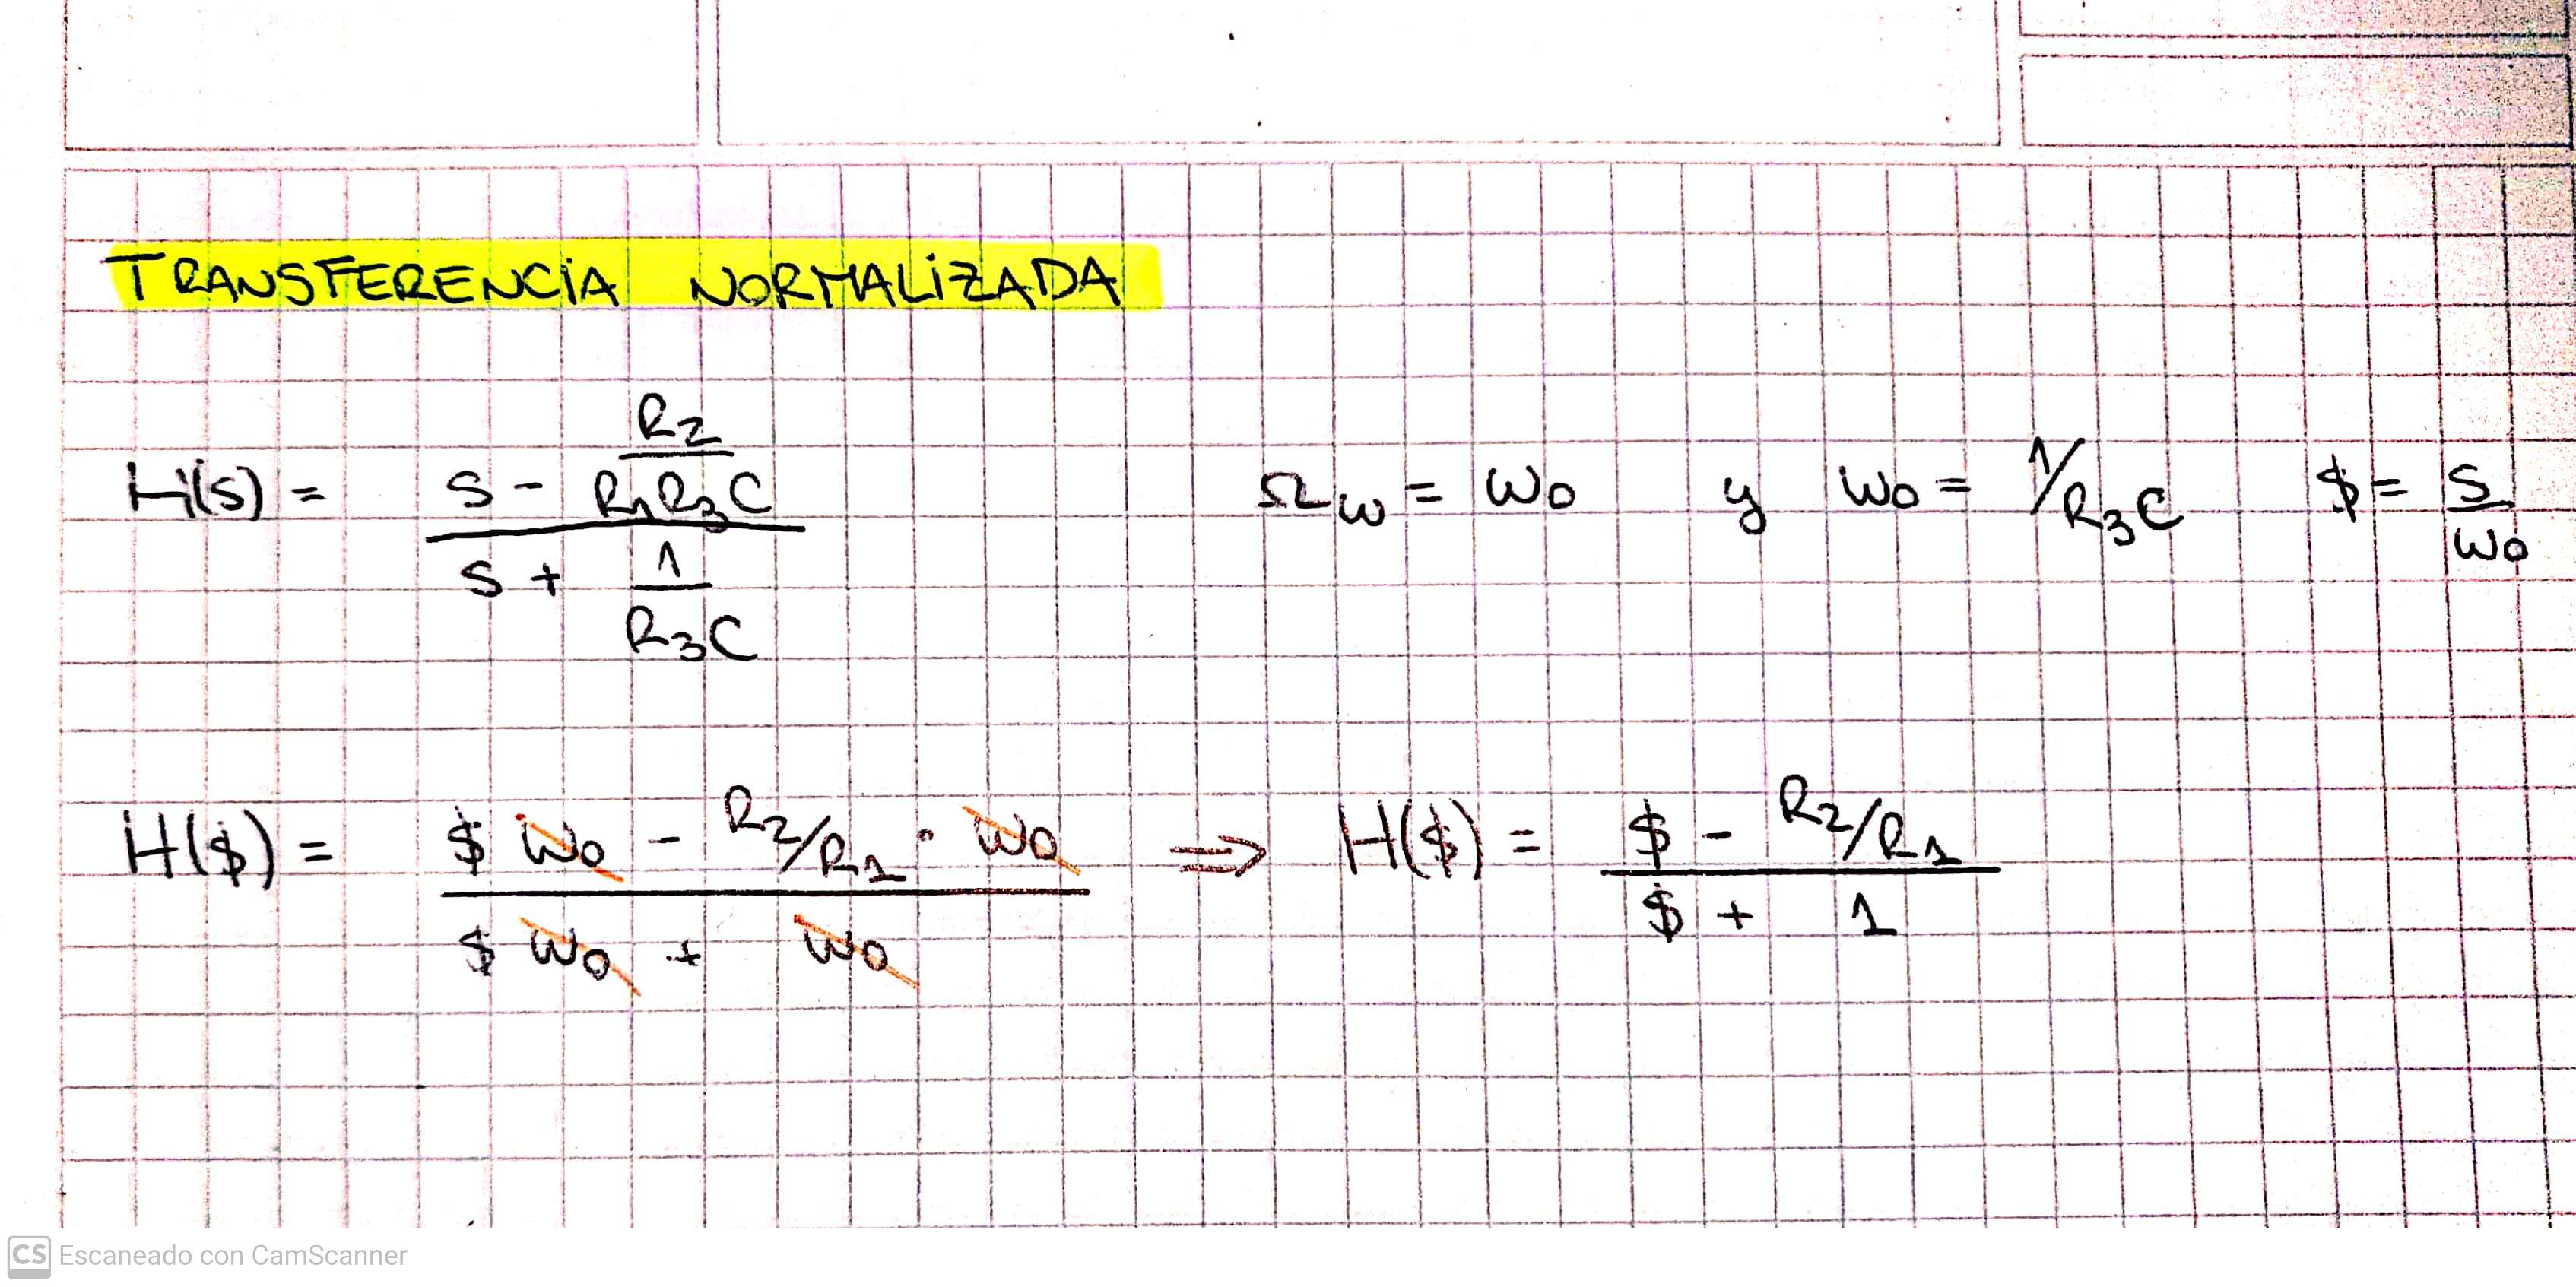 TRANSFERENCIA NORMALIZADA
H(s) = (s - R2/(R1R3C)) / (s + 1/(R3C))    Ωw = Wo    y    Wo = 1/R3C    $ = s/Wo
H($) = ($ Wo - R2/R1 · Wo) / ($ Wo + Wo) ⇒ H($) = ($ - R2/R1) / ($ + 1)
CS Escaneado con CamScanner